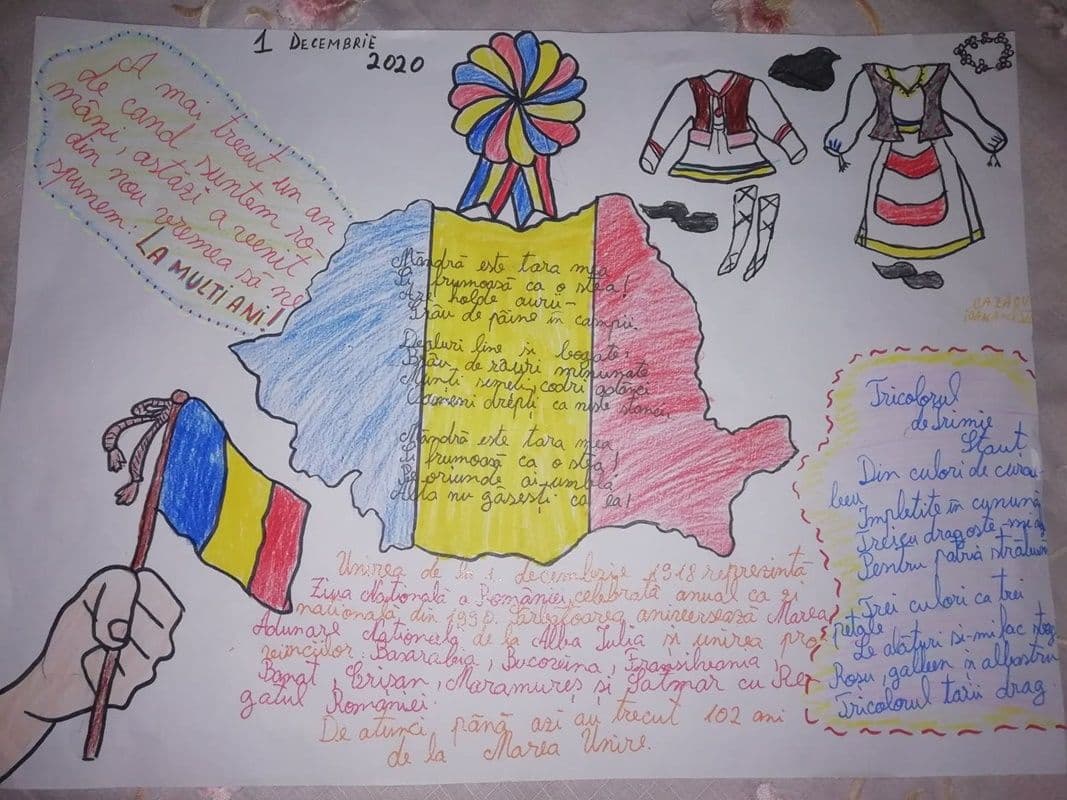 1 DECEMBRIE
2020
A mai trecut un an
de cand suntem ro-
mâni, astăzi a veenit
din nou vremea să ne
spunem:
LA MULTI ANI!
Mândră este tara mea
Și frumoasă ca o stea!
Are holde aurii-
Grâu de pâine în campii.
Dealuri line si bogate,
Brâu de râuri minunate
Munți semeți, codri
Oameni drepti ca niste stânci,
Mândră este tara mea
frumoasă ca o stea!
oriunde ai umbla
Alta nu găsești ca ea!
Tricolorul
de Irimie
Străuț
Din culori de curcu-
beu
Impletite în cunună
Tresca dragoste-mi
Pentru patria străbună
Trei culori ca trei
petale
Le alături si-mi fac steag
Rosu, galben n albastru
Tricolorul tarii drag
Unirea de la 1 decembrie 1918 reprezintă
Ziua Națională a României, celebrată anual ca zi
națională din 1990. Sărbătoarea aniversează Marea
Adunare Națională de la Alba Iulia și unirea pro
vinciilor: Basarabia, Bucovina, Transilvania,
Banat, Crișan, Maramureș și Satmar cu Re
gatul României.
De atunci până azi au trecut 102 ani
de la Marea Unire.